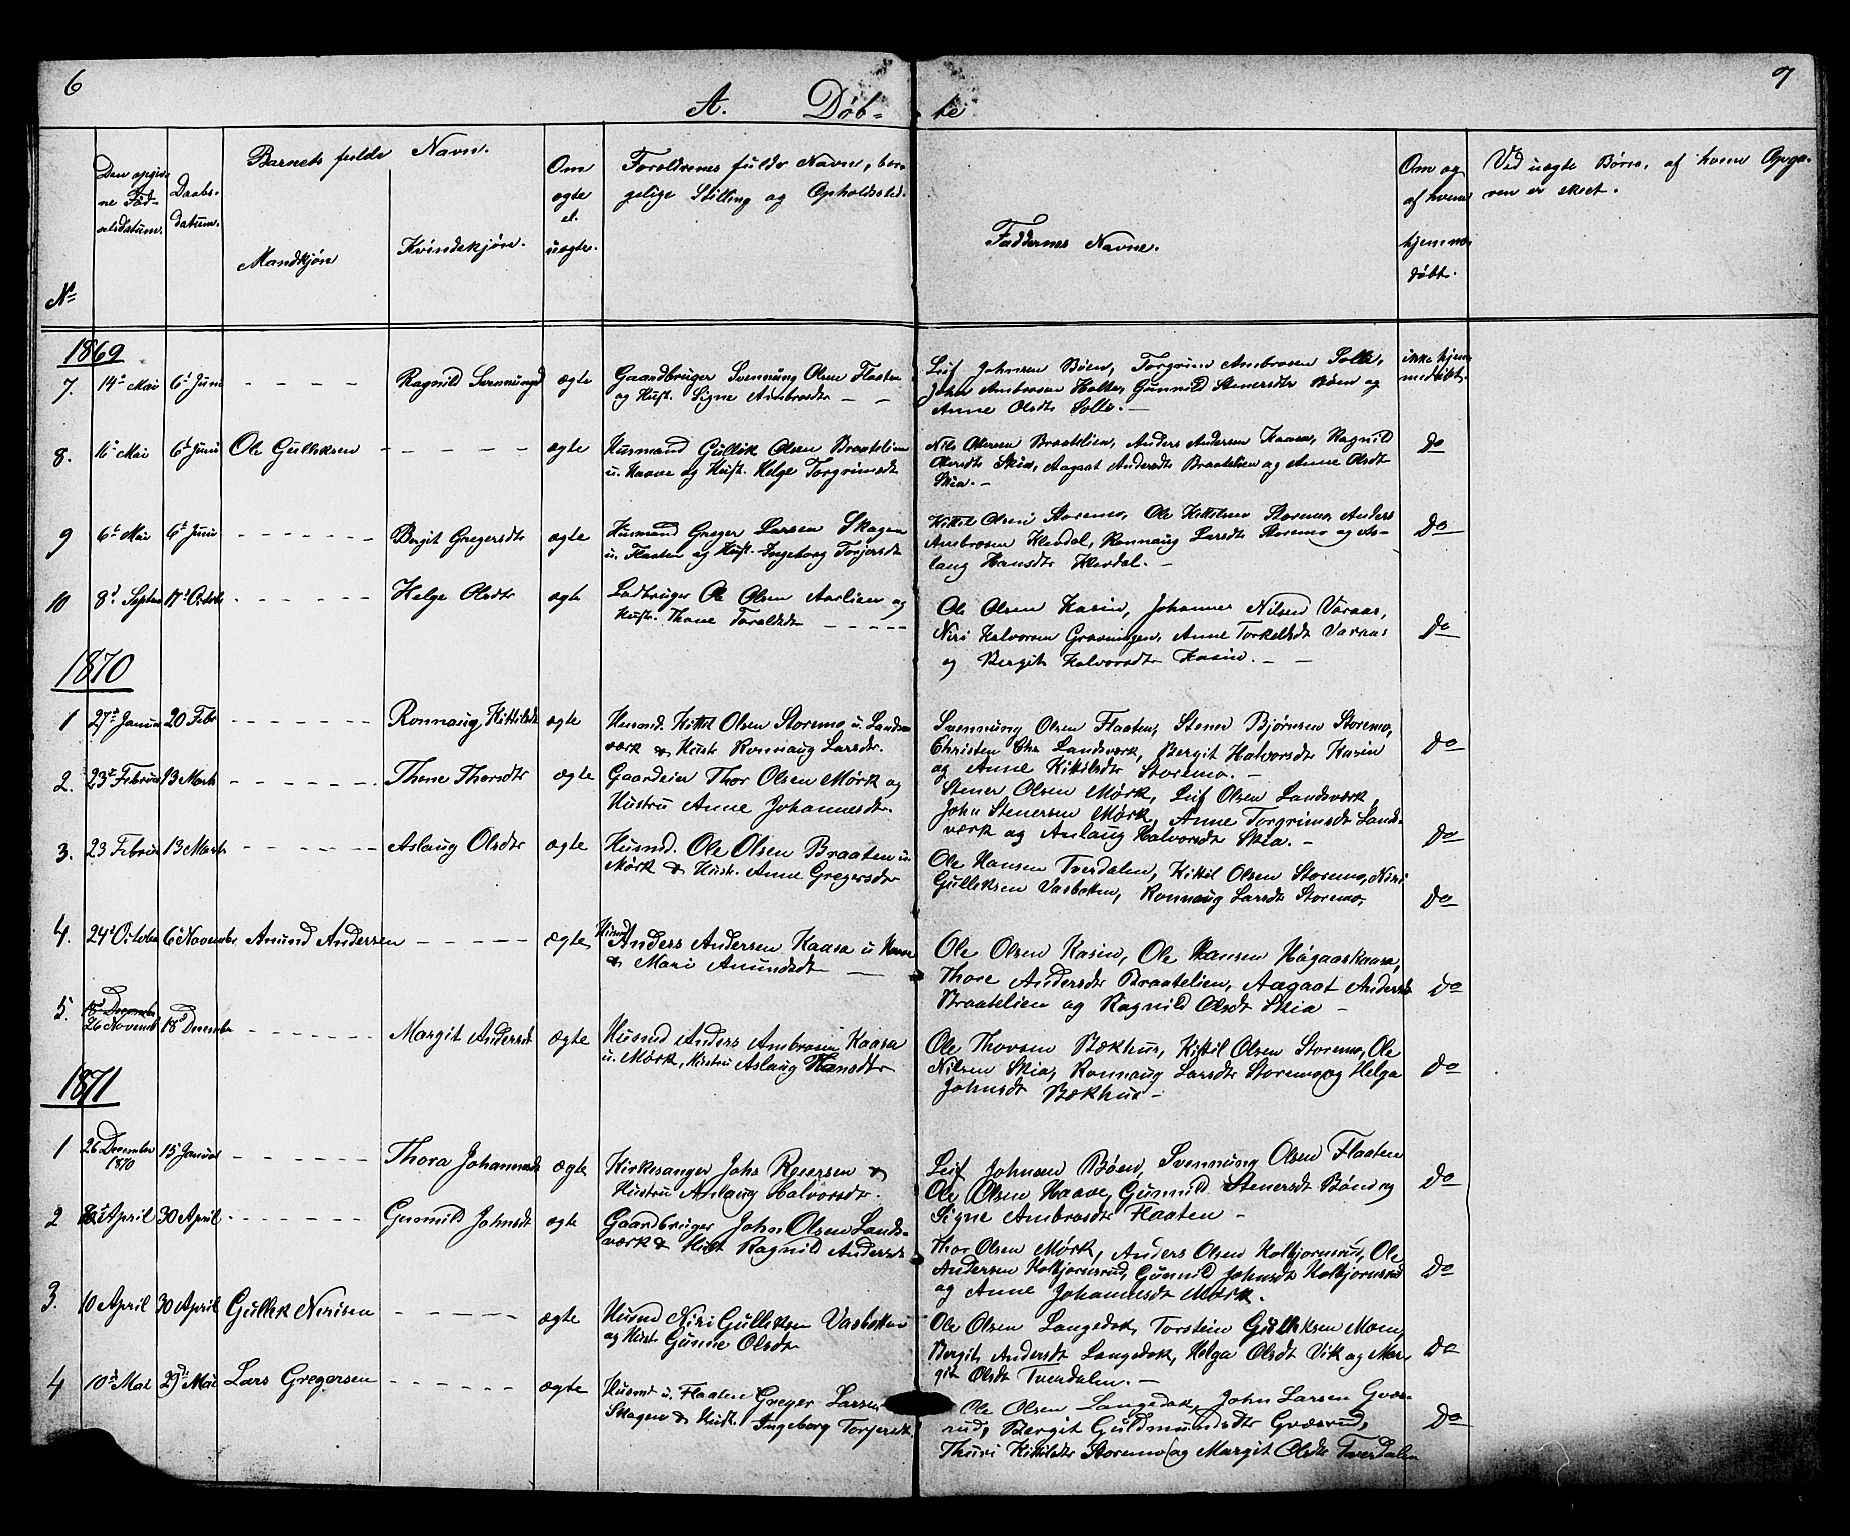 6
7
A. Døb-te
No
Den opgiv-
ne Fød-
selsdatum.
Daabs-
datum.
Barnets fulde Navn.
Mandkjøn
Kvindekjøn.
Om
ægte
el.
uægte.
Forældrenes fulde Navn, bor-
gelige Stilling og Opholdssted.
Faddernes Navne.
Om og
af hvem
hjemme-
døbt.
Ved uægte Børn, af hvem Opga-
ven er skeet.
1869
7. 14de Mai 6te Juni - - - - Ragnild Svennungsd ægte
Gaardbruger Svennung Olsen Flaaten
og Hust. Signe Ambrosdtr - -
Leif Johnsen Bøen, Torgrim Ambrosen Solli,
John Ambrosen Holte, Gunnild Stenersdtr Bøen og
Anne Olsdtr Solli. -
ikke hjem-
medøbt.
8. 16de Mai 6te Juni Ole Gulliksen - - - - ægte
Husmand Gullik Olsen Braatelien
u. Haave og Hust. Helge Torgrimsdt
Nils Olsen Braatelien, Anders Andersen Kaasa, Ragnild
Olsdtr Skia, Aagaat Andersdtr Braatelien og Anne Olsdtr
Skia. -
Do
9 6te Mai 6te Juni - - - - Birgit Gregersdtr ægte
Husmand Greger Larsen Skagen
u. Flaaten og Hust. Ingeborg Torjersdt
Kittil Olsen Storemo, Ole Kittilsen Storemo, Anders
Ambrosen Klevdal, Ronnaug Larsdtr Storemo og As-
laug Hansdtr Klevdal. -
Do
10 8de Septbr 17de Octob - - - - Helge Olsdtr ægte
Ladbruger Ole Olsen Aaslien og
Hust. Thone Toroldsdtr - - - -
Ole Olsen Kasin, Johannes Nilsen Varaas,
Niri Halvorsen Gravningen, Anne Torkelsdt Varaas
og Bergit Halvorsdtr Kasin. - -
Do
1870
1 27de Januar 20 Febr - - - - Ronnaug Kittilsdt ægte
Husmd. Kittil Olsen Storemo u. Lands-
værk & Hustr Ronnaug Larsdtr.
Svennung Olsen Flaaten, Stener Bjørnsen Storemo,
Christen Chr Landsværk, Bergit Halvorsdtr Kasin
og Anne Kittilsdtr Storemo. -
Do
2. 23de Februar 13 Marts - - - - Thone Thorsdtr ægte
Gaardeier Thor Olsen Mørk og
Hustru Anne Johannesdtr.
Stener Olsen Mørk, Leif Olsen Landsværk,
John Stenersen Mørk, Anne Torgrimsdt Lands-
værk og Aslaug Halvorsdt Skia. -
Do
3. 23 Februar 13 Marts - - - - Aslaug Olsdtr ægte
Husmd. Ole Olsen Braaten u.
Mørk & Hustr. Anne Gregersdtr
Ole Hansen Tverdalen, Kittil Olsen Storemo, Niri
Gulliksen Vasbotten, Ronnaug Larsdt Storemo,
Do
4. 24de October 6te Novembr. Anund Andersen - - - - ægte
Husmd Anders Andersen Kaasa u Haave
& Mari Anundsdt -
Ole Olsen Kasin, Ole Hansen Høgaaskaasa,
Thore Andersdtr Braatelien, Aagaat Andersdt
Braatelien og Ragnild Olsdt Skia -
Do
5. 18de December
26 Novembr 18de Decembr - - - - Margit Andersdt ægte
Husmd Anders Ambrosen Kaasa
u. Mørk, Hustru Aslaug Hansdtr
Ole Thovsen Bækhus, Kittil Olsen Storemo, Ole
Nilsen Skia, Ronnaug Larsdtr Storemo og Helga
Johnsdt Bækhus -
Do
1871
1 26 December
1870 15 Januar - - - - Thora Johannesdt ægte
Kirkesanger Johs Roiersen &
Hustru Aslaug Halvorsdtr.
Leif Johnsen Bøen, Svennung Olsen Flaaten
Ole Olsen Haave, Gunnild Stenersdt Bøen og
Signe Ambrosdtr Flaaten -
Do
2 April 30 April - - - - Gunnild Johnsdt ægte
Gaardbruger John Olsen Lands-
værk & Hust Ragnild Andersdt
Thor Olsen Mørk, Anders Olsen Kolbjørnsrud, Ole
Andersen Kolbjørnsrud, Gunnild Johnsdt Kolbjørnsrud
og Anne Johannesdt Mørk.
Do
3. 10 April 30 April Gullik Nirisen - - - - ægte
Husmd Niri Gulliksen Vasbotten
og Hust Gunne Olsdtr
Ole Olsen Langedok, Torstein Gulliksen Moen,
Bergit Andersdt Langedok, Helga Olsdt Vik og Mar-
git Olsdt Tverdalen. -
Do
4 10de Mai 29de Mai Lars Gregersen - - - - ægte
Husmd u. Flaaten Greger Larsen
Skagen & Hust. Ingeborg Torjersdt
Ole Olsen Langedok, John Larsen Gvæs-
rud, Bergit Guldmundsdtr Gvæsrud,
Thuri Kittilsdtr Storemo og Margit Olsdtr Tverdalen
Do